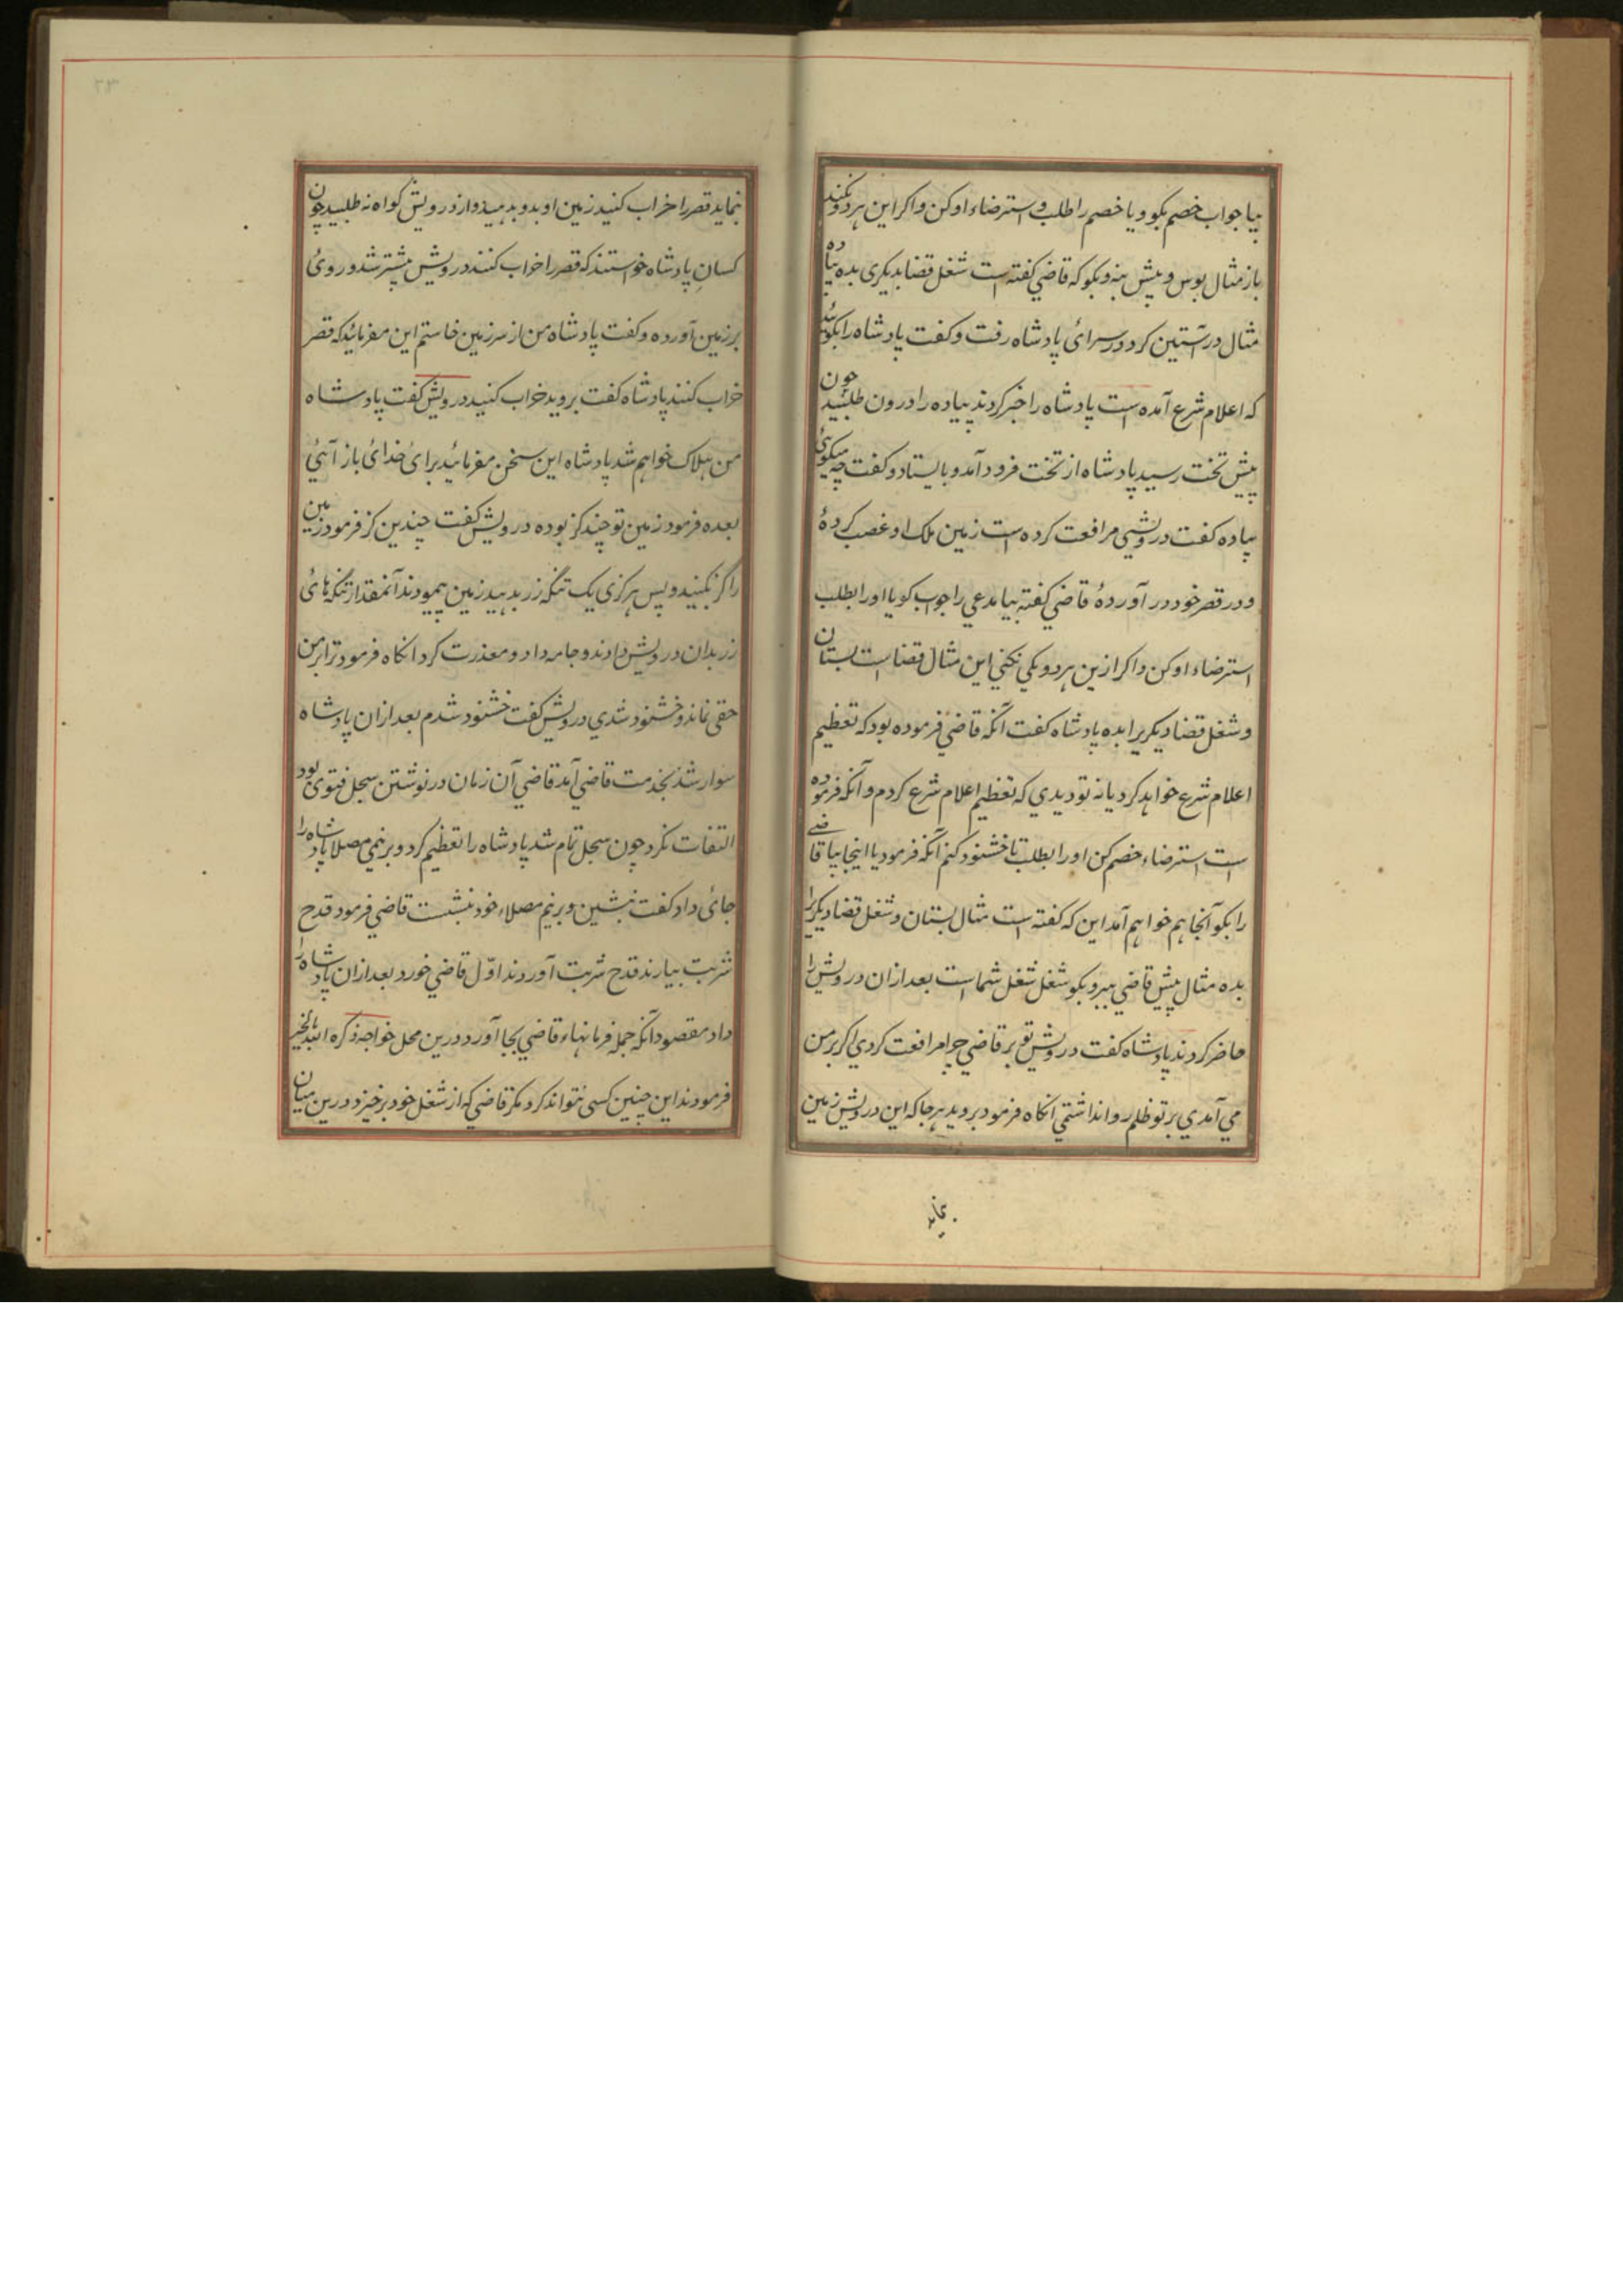 بیا جواب خصم بگو و یا خصم را طلب و استرضاء او کن و اگر این هر دو نکند
باز مثال بوس و پیش بنه و بگو که قاضی گفته است شغل قضا بدیگری بده پیاده
مثال در آستین کرد و در سرائ پادشاه رفت و گفت پادشاه را بگوئید
که اعلام شرع آمده است پادشاه را خبر کردند پیاده را درون طلبید چون
پیش تخت رسید پادشاه از تخت فرود آمد و بایستاد و گفت چه میگوئ
پیاده گفت درویشی مرافعت کرده است زمین ملک او غصب کردهٔ
و در قصر خود در آوردهٔ قاضی گفته بیا مدعی را جواب گو یا او را بطلب
استرضاء او کن و اگر ازین هر دو یکی نکنی این مثال قضا است بستان
و شغل قضا دیگریرا بده پادشاه گفت آنکه قاضی فرموده بود که تعظیم
اعلام شرع خواهد کرد یا نه تو دیدی که تعظیم اعلام شرع کردم و آنکه فرموده
است استرضاء خصم کن او را بطلب تا خشنود کنم آنکه فرمود یا اینجا بیا قاضی
را بگو آنجا هم خواهم آمد این که گفته است مثال بستان و شغل قضا دیگریرا
بده مثال پیش قاضی ببر و بگو شغل شغل شما است بعد ازان درویش را
حاضر کردند پادشاه گفت درویش تو بر قاضی چرا مرافعت کردی اگر بر من
می آمدی بر تو ظلم روا نداشتمی آنگاه فرمود بروید هر جا که این درویش زمین
بنماید
بنماید قصر را خراب کنید زمین او بدو بدهید و از درویش گواه نه طلبید چون
کسانِ پادشاه خواستند که قصر را خراب کنند درویش پیشتر شد و روئ
بر زمین آورده و گفت پادشاه من از سر زمین خاستم این مفرمائید که قصر
خراب کنند پادشاه گفت بروید خراب کنید درویش گفت پادشاه
من هلاک خواهم شد پادشاه این سخن مفرمائید برائ خدائ باز آئی
بعده فرمود زمین تو چند گز بوده درویش گفت چندین گز فرمود زمین
را گز بکنید و پس هر گزی یک تنگه زر بدهید زمین پیمودند آنمقدار تنگه هائ
زر بدان درویش دادند و جامه داد و معذرت کرد آنگاه فرمود ترا بر من
حقی نماند و خشنود شدی درویش گفت خشنود شدم بعد ازان پادشاه
سوار شد بخدمت قاضی آمد قاضی آن زمان در نوشتن سجل فتوی بود
التفات نکرد چون سجل تمام شد پادشاه را تعظیم کرد و بر نیمی مصلا پادشاه را
جائ داد گفت بنشین و بر نیم مصلاء خود بنشست قاضی فرمود قدح
شربت بیارند قدح شربت آوردند اوّل قاضی خورد بعد ازان پادشاه را
داد مقصود آنکه جمله فرمانهاء قاضی بجا آورد درین محل خواجه ذکره الله بالخیر
فرمودند این چنین کسی نتواند کرد مگر قاضی که از شغل خود برخیزد درین میان